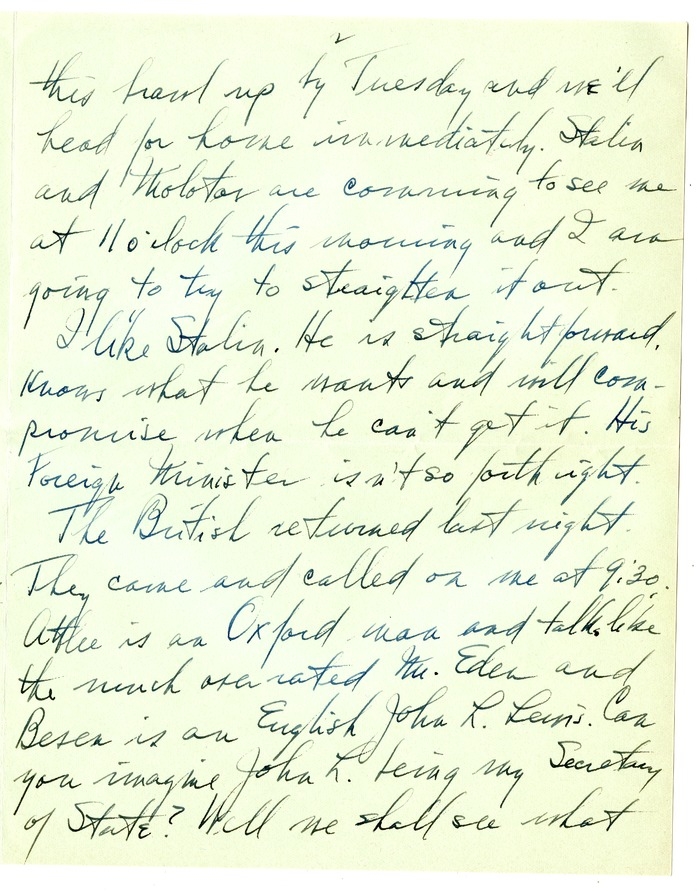 2
this brawl up by Tuesday and we'll
head for home immediately. Stalin
and Molotov are comming to see me
at 11 o'clock this morning and I am
going to try to straighten it out.
I like Stalin. He is straightforward.
Knows what he wants and will com-
promise when he can't get it. His
Foreign Minister isn't so forthright.
The British returned last night.
They came and called on me at 9:30.
Attlee is an Oxford man and talks like
the much overrated Mr. Eden and
Beven is an English John L. Lewis. Can
you imagine John L. being my Secretary
of State? Well we shall see what